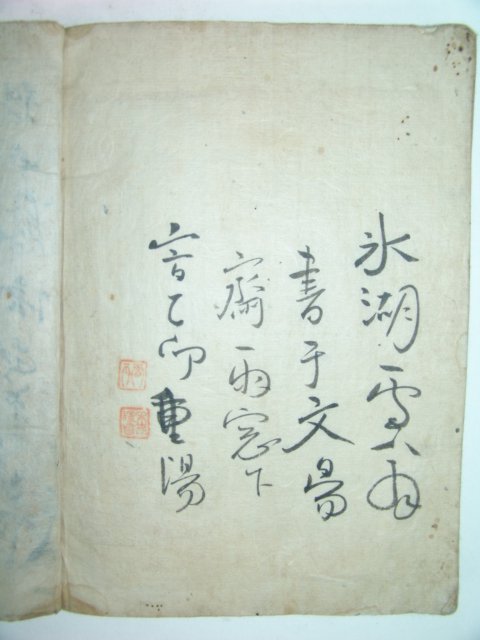 氷湖雪翁
書于文昌
齋雨窓下
旹乙卯重陽